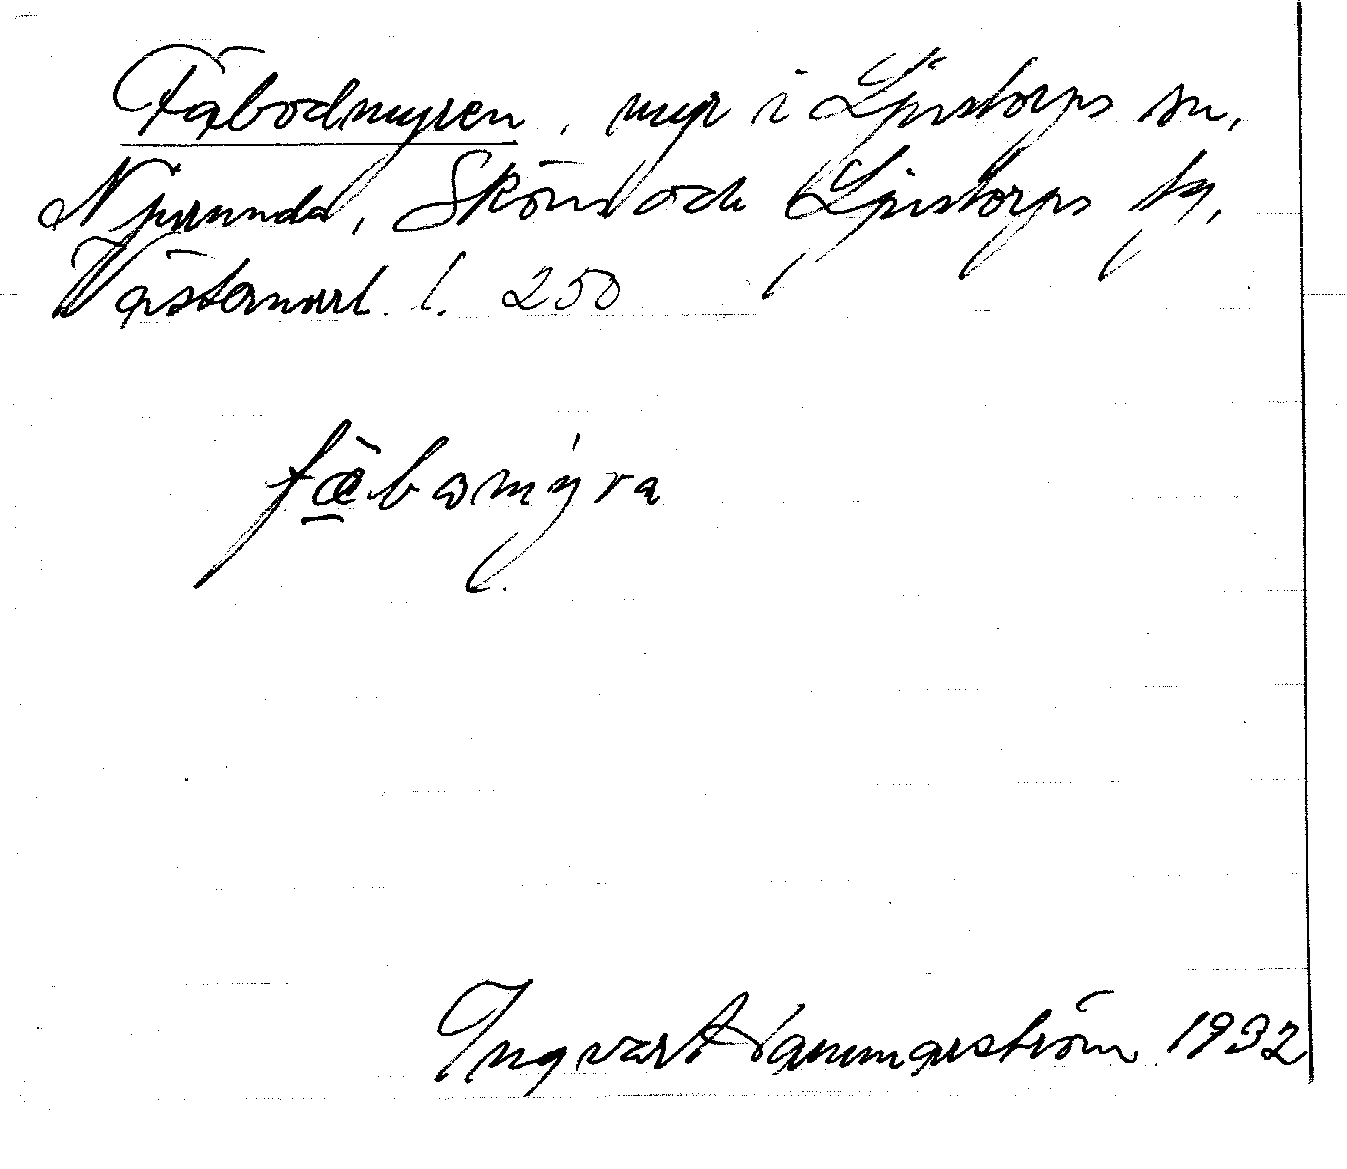 Fäbodmyren, myr i Ljustorps sn,
Njurunda, Sköns och Ljustorps tg,
Västernorrl. l. 250
fæ̀bωmýra
Ingvar Hammarström 1932